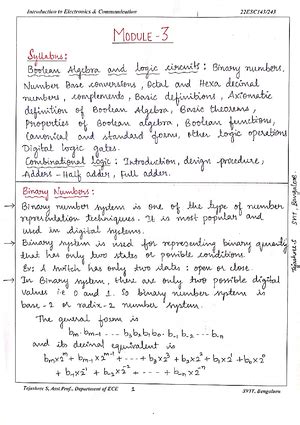 Introduction to Electronics & Communication 22ESC143/243
MODULE-3
Syllabus:
Boolean Algebra and logic circuits: Binary numbers,
Number Base conversions, Octal and Hexa decimal
numbers, complements, Basic definitions, Axiomatic
definition of Boolean Algebra, Basic theorems,
Properties of Boolean algebra, Boolean functions,
Canonical and standard forms, other logic operations
Digital logic gates.
Combinational logic: Introduction, design procedure,
Adders-Half adder, Full adder.
Binary Numbers:
→ Binary number system is one of the type of number
representation techniques. It is most popular and
used in digital systems.
→ Binary system is used for representing binary quantity
that has only two states or possible conditions.
Ex: A switch has only two states: open or close.
→ In Binary system, there are only two possible digital
values i.e 0 and 1. So binary number system is
base-2 or radix-2 number system.
The general form is
bm bm-1 --- b3 b2 b1 b0 . b-1 b-2 --- b-n
and its decimal equivalent is
bm×2^m + bm-1×2^m-1 + --- + b3×2^3 + b2×2^2 + b1×2^1 + b0×2^0
+ b-1×2^-1 + b-2×2^-2 --- + b-n×2^-n
Tejashree S, Asst.Prof., Department of ECE 1 SVIT, Bengaluru
Tejashree S SVIT, Bengaluru